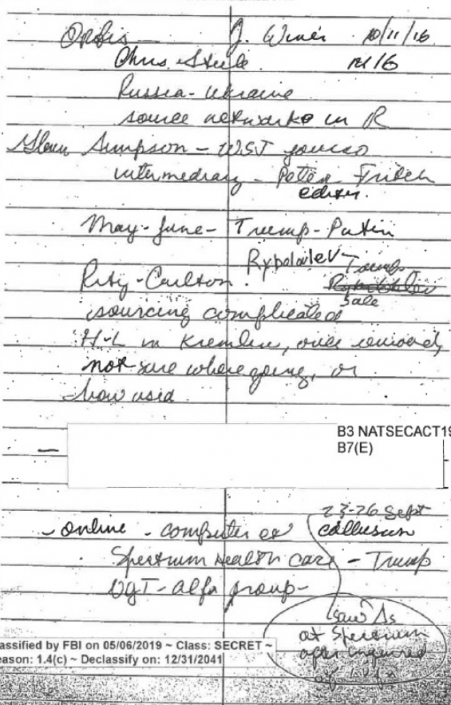 Orbis J. Winer 10/11/16
Chris Steele MI6
Russia-Ukraine
source networks in R
Glenn Simpson - WSJ
intermediary - Peter Fritch
editor
May-June- Trump-Putin
Rybolovlev-Trump
Ritz-Carlton.
sale
sourcing complicated
H-L in Kremlin, once removed,
not sure where going, or
how used
B3 NATSECACT19
B7(E)
23-26 Sept
- online - computer co collusion
Spectrum Health care - Trump
- alfa group -
saw Δs
at Spectrum
after inquired
of Alfa
assified by FBI on 05/06/2019 ~ Class: SECRET ~
eason: 1.4(c) ~ Declassify on: 12/31/2041